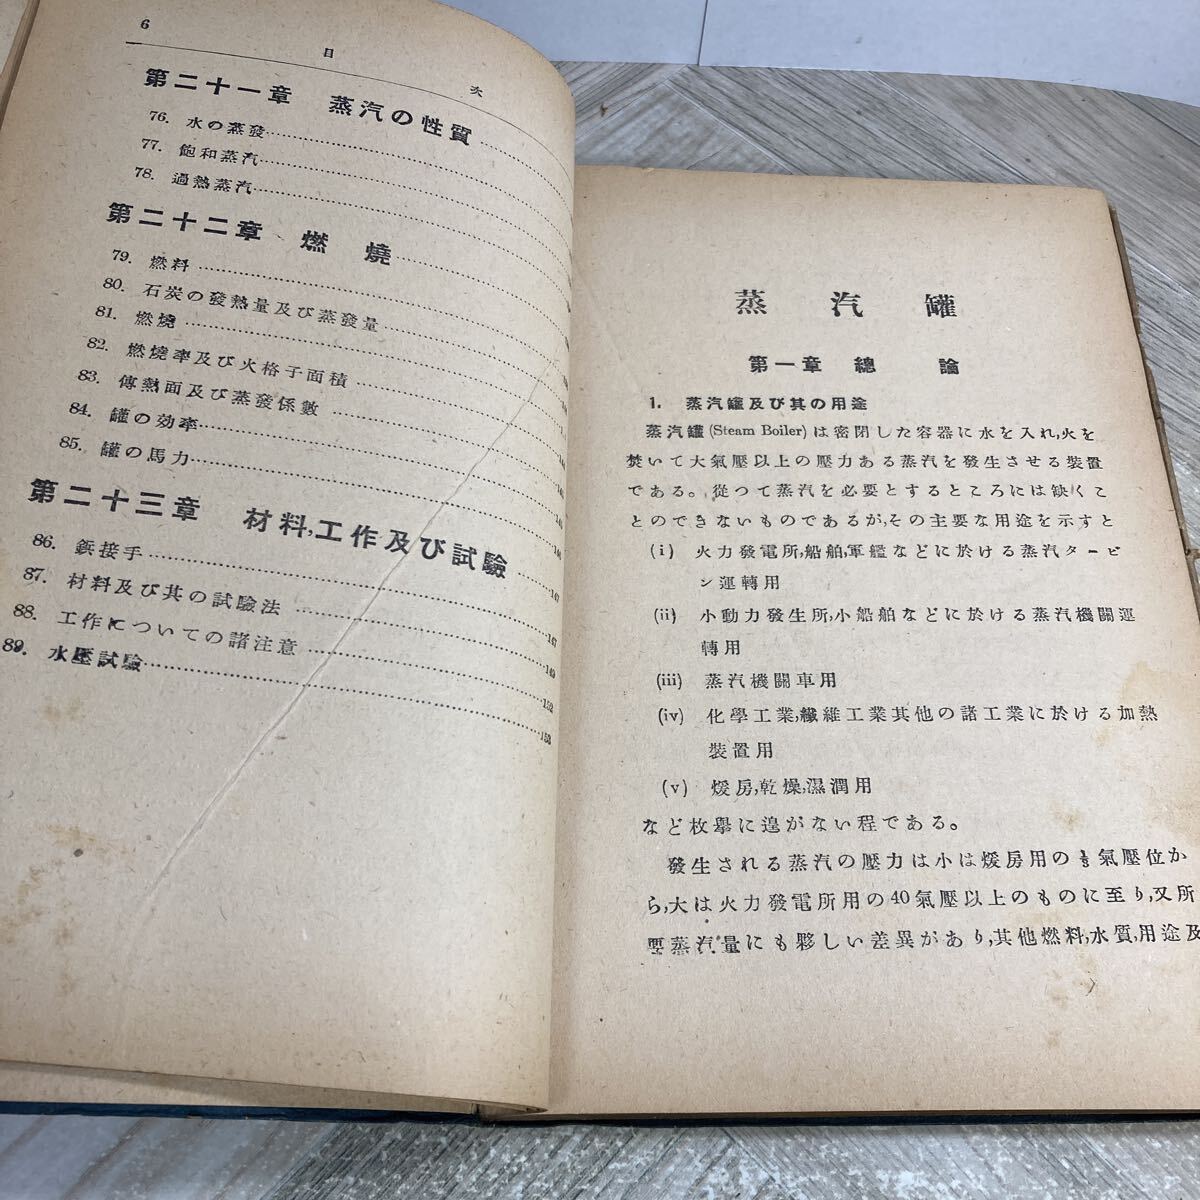 6
目次
第二十一章 蒸汽の性質
76. 水の蒸發
77. 飽和蒸汽
78. 過熱蒸汽
第二十二章 燃燒
79. 燃料
80. 石炭の發熱量及び蒸發量
81. 燃燒
82. 燃燒率及び火格子面積
83. 傳熱面及び蒸發係數
84. 罐の効率
85. 罐の馬力
第二十三章 材料,工作及び試驗 147
86. 鋲接手 147
87. 材料及び其の試驗法 149
88. 工作についての諸注意 152
89. 水壓試驗 153
蒸汽罐
第一章 總論
1. 蒸汽罐及び其の用途
蒸汽罐(Steam Boiler)は密閉した容器に水を入れ,火を
焚いて大氣壓以上の壓力ある蒸汽を發生させる裝置
である。從つて蒸汽を必要とするところには缺くこ
とのできないものであるが,その主要な用途を示すと
(i) 火力發電所,船舶,軍艦などに於ける蒸汽タービ
ン運轉用
(ii) 小動力發生所,小船舶などに於ける蒸汽機關運
轉用
(iii) 蒸汽機關車用
(iv) 化學工業,纎維工業其他の諸工業に於ける加熱
裝置用
(v) 煖房,乾燥,濕潤用
など枚擧に遑がない程である。
發生される蒸汽の壓力は小は煖房用の 氣壓位か
ら,大は火力發電所用の40氣壓以上のものに至り,又所
要蒸汽量にも夥しい差異があり,其他燃料,水質,用途及